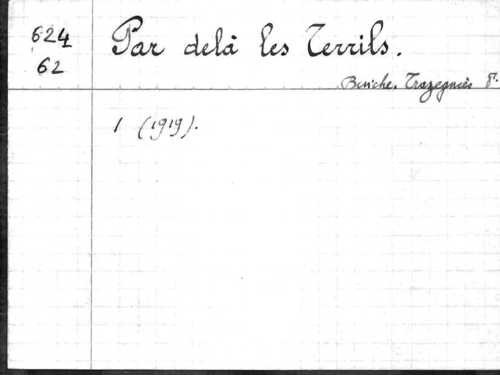 624
62
Par delà les Terrils.
Binche, Trazegnies
1 (1919).